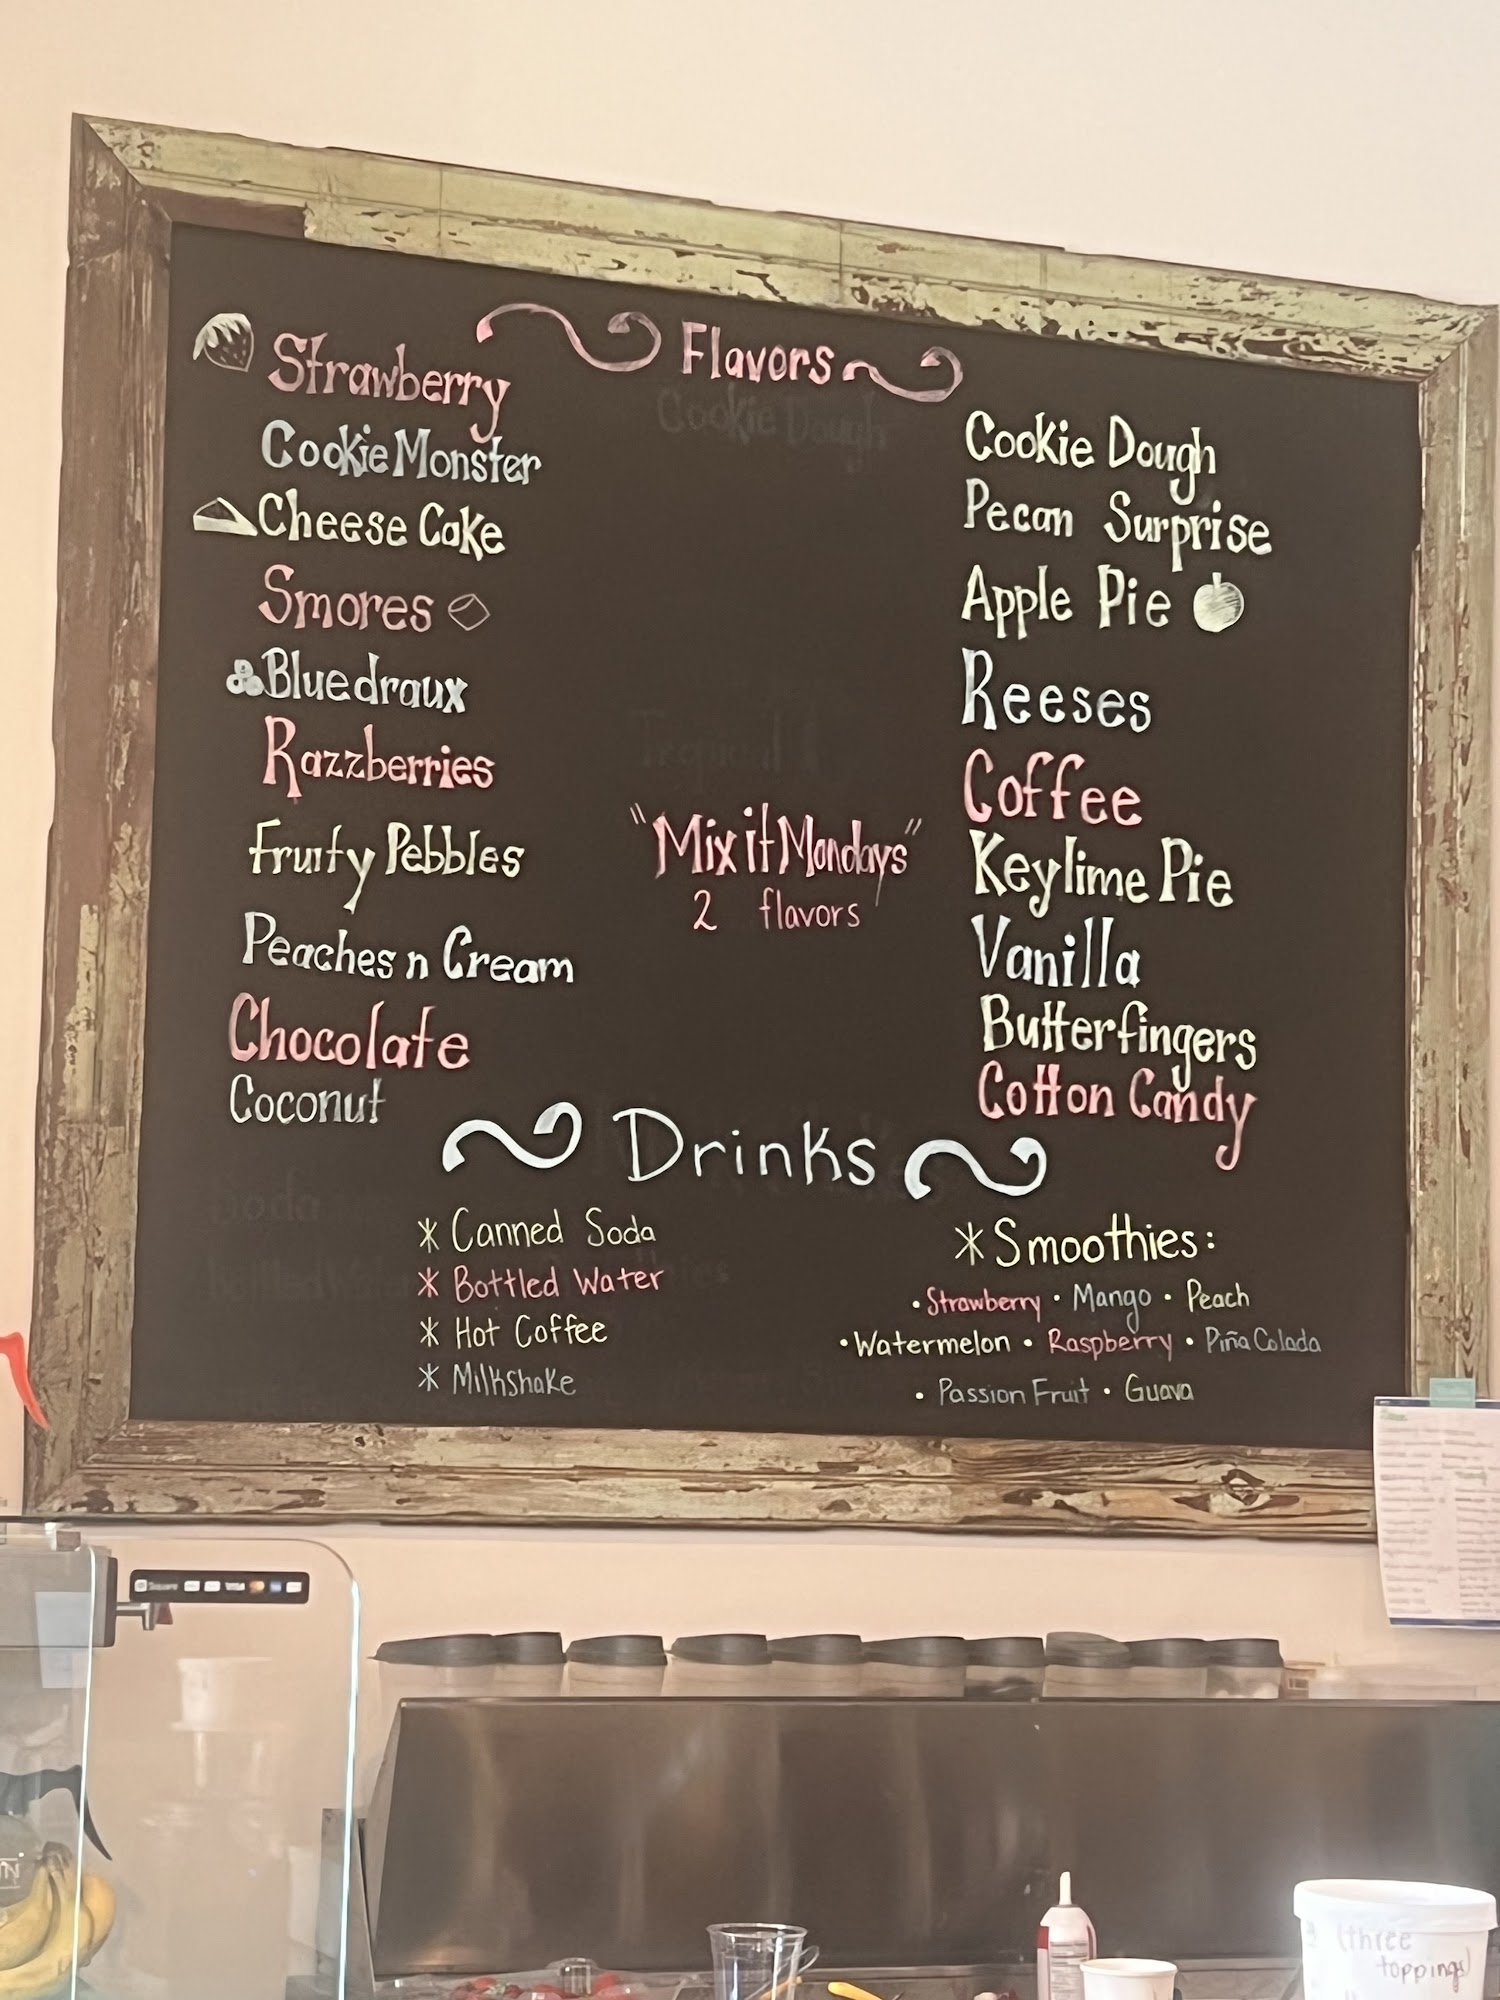 Flavors
Strawberry
Cookie Monster
Cheese Cake
Smores
Bluedraux
Razzberries
Fruity Pebbles
Peaches n Cream
Chocolate
Coconut
Cookie Dough
"Mix it Mondays"
2 flavors
Cookie Dough
Pecan Surprise
Apple Pie
Reeses
Coffee
Keylime Pie
Vanilla
Butterfingers
Cotton Candy
Drinks
* Canned Soda
* Bottled Water
* Hot Coffee
* Milkshake
* Smoothies:
• Strawberry • Mango • Peach
• Watermelon • Raspberry • Piña Colada
• Passion Fruit • Guava
Square VISA
(three
toppings)